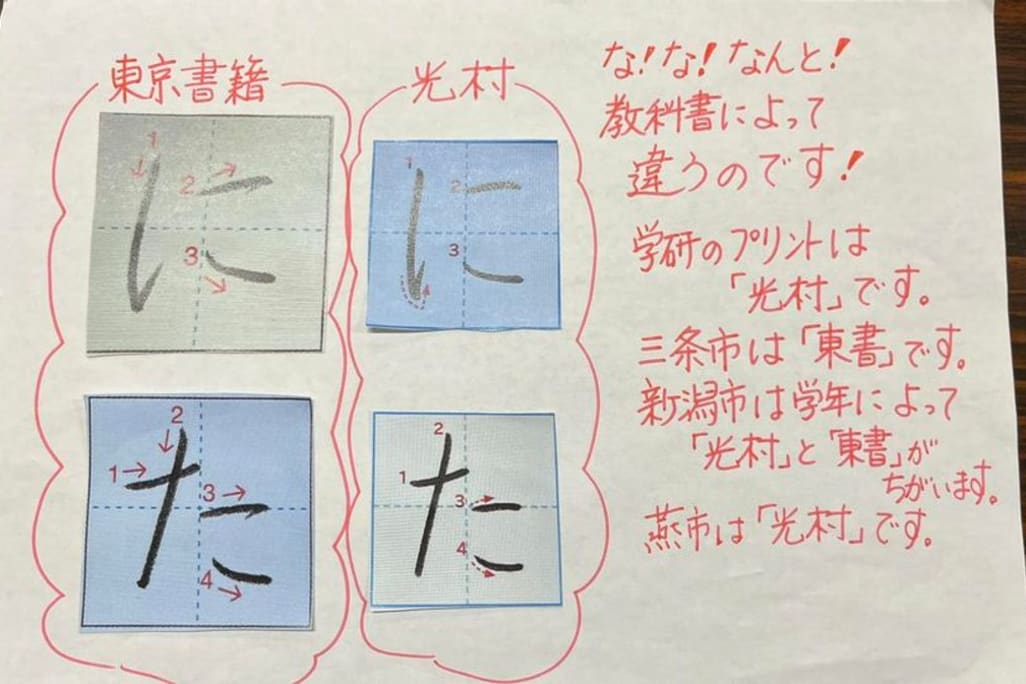 東京書籍
1
2
3
に
2
1
3
4
た
光村
1
2
3
に
2
1
3
4
た
な！な！なんと！
教科書によって
違うのです！
学研のプリントは
「光村」です。
三条市は「東書」です。
新潟市は学年によって
「光村」と「東書」が
ちがいます。
燕市は「光村」です。